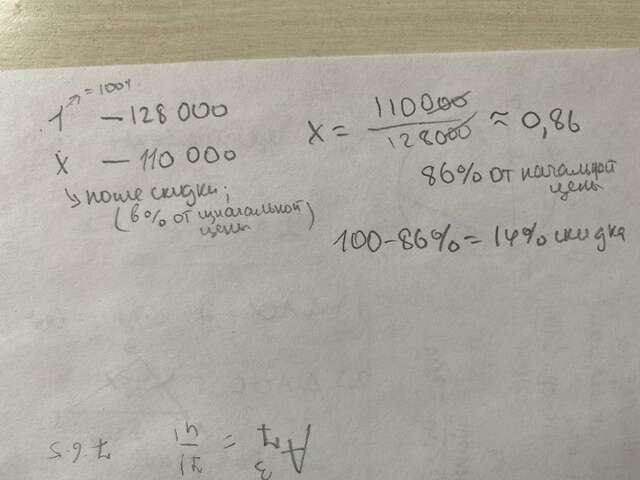 = 100%
1 – 128 000
x – 110 000
после скидки;
(в % от изначальной
цены)
x = 110000 / 128000 ≈ 0,86
86% от начальной
цены
100-86% = 14% скидка
A₇³ = 7! / 4! 7·6·5